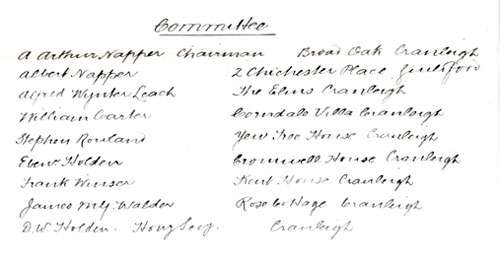 Committee
A Arthur Napper Chairman Broad Oak Cranleigh
Albert Napper 2 Chichester Place
Alfred Wynter Leach The Elms Cranleigh
William Carter Corndale Villa Cranleigh
Stephen Rowland Yew Tree House Cranleigh
Ebenr Holden Cromwell House Cranleigh
Frank Winser Kent House Cranleigh
James Walder Rose Cottage Cranleigh
D.W. Holden. Hony Secy. Cranleigh